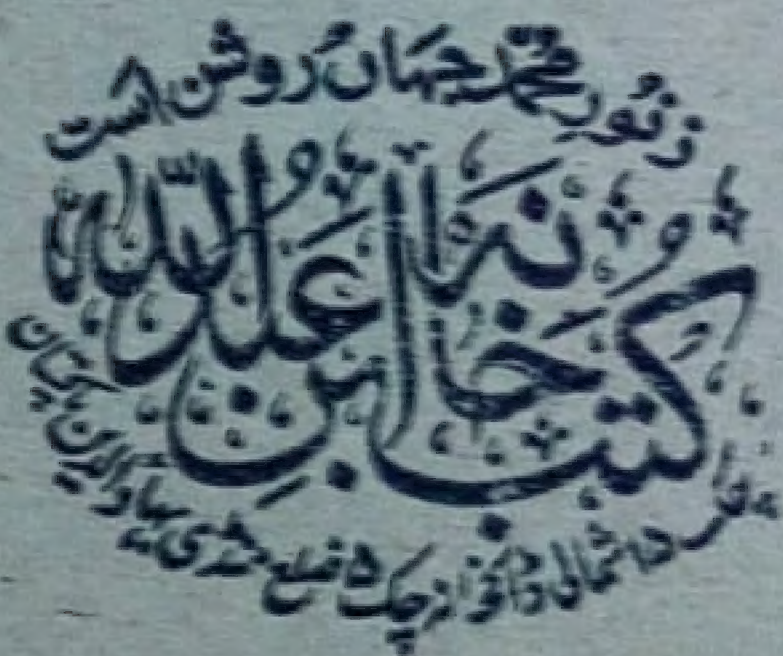 ز نُورِ مُحَمَّد جہاں رُوشن است
کتب خانہ ابن عبداللہ
شمالی ڈاکخانہ چک ۵ ضلع منڈی بہاؤالدین پاکستان